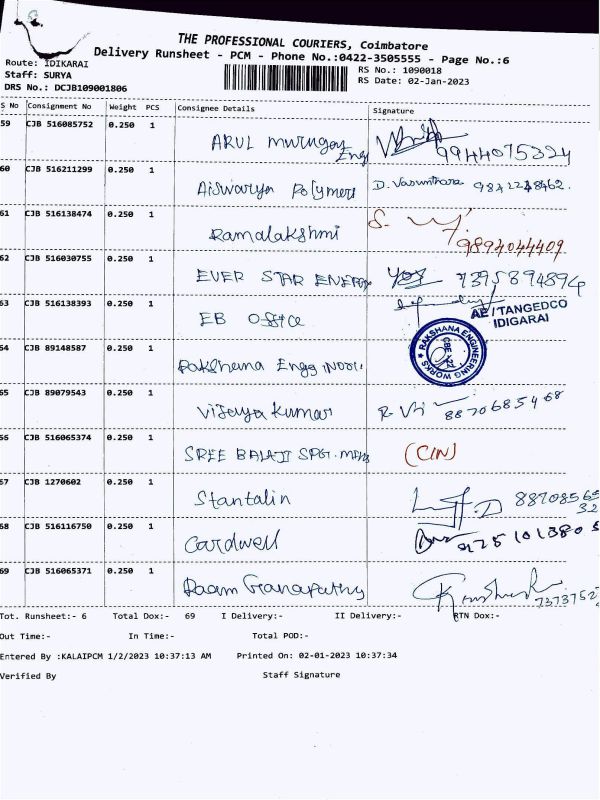 THE PROFESSIONAL COURIERS, Coimbatore
Delivery Runsheet - PCM - Phone No.:0422-3505555 - Page No.:6
Route: IDIKARAI
Staff: SURYA
RS No.: 1090018
DRS No.: DCJB109001806
RS Date: 02-Jan-2023
S No Consignment No Weight PCS Consignee Details Signature
59 CJB 516085752 0.250 1 ARUL Murugan Eng 9944075324
60 CJB 516211299 0.250 1 Aiswarya Polymers D. Vasunthara
61 CJB 516138474 0.250 1 Ramalakshmi S. 9894044409
62 CJB 516030755 0.250 1 EVER STAR ENERGY 7395894894
63 CJB 516138393 0.250 1 EB Office
AE / TANGEDCO
IDIGARAI
64 CJB 89148587 0.250 1 Rakshana Engg
RAKSHANA ENGINEERING WORKS
65 CJB 89079543 0.250 1 Vijaya Kumar 8870685468
66 CJB 516065374 0.250 1 SREE BALAJI SPG. Mills
67 CJB 1270602 0.250 1 Stantalin 88708565
32
68 CJB 516116750 0.250 1 Cardwell
69 CJB 516065371 0.250 1 Raam Ganapathy
Tot. Runsheet:- 6 Total Dox:- 69 I Delivery:- II Delivery:- RTN Dox:-
Out Time:- In Time:- Total POD:-
Entered By :KALAIPCM 1/2/2023 10:37:13 AM Printed On: 02-01-2023 10:37:34
Verified By Staff Signature